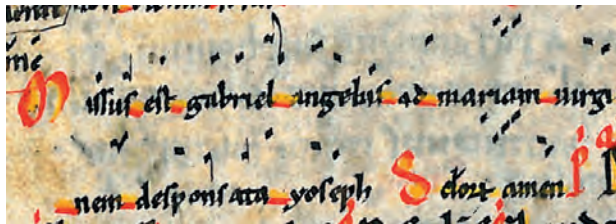 Missus est gabriel angelus ad mariam virgi
nem desponsata yoseph S elort amen P